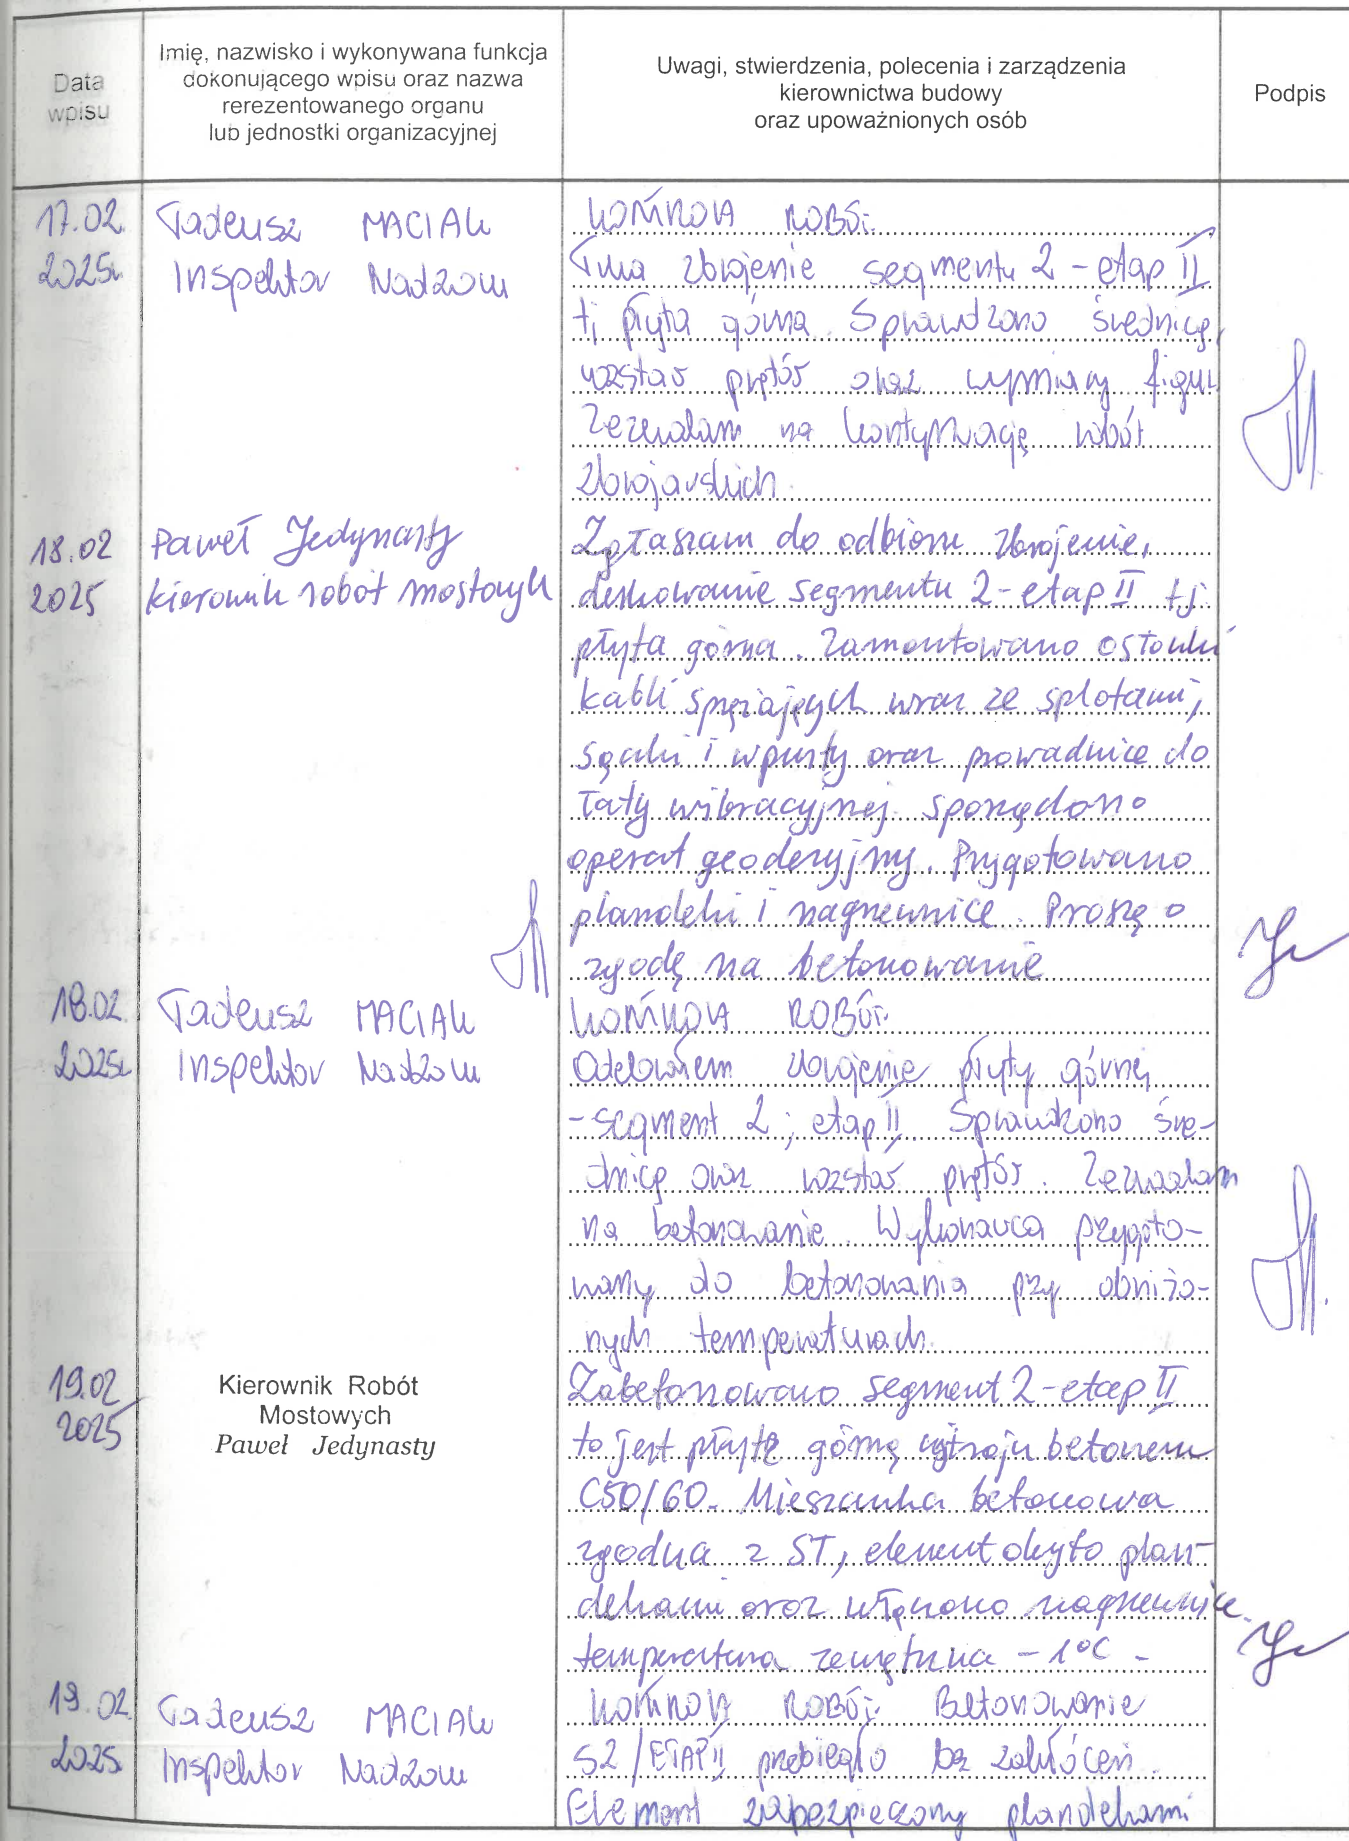 Data
wpisu
Imię, nazwisko i wykonywana funkcja
dokonującego wpisu oraz nazwa
rerezentowanego organu
lub jednostki organizacyjnej
Uwagi, stwierdzenia, polecenia i zarządzenia
kierownictwa budowy
oraz upoważnionych osób
Podpis
17.02.
2025r.
Tadeusz MACIAK
Inspektor Nadzoru
KONTROLA ROBÓT.
Trwa zbrojenie segmentu 2 - etap II
tj płyta górna. Sprawdzono średnicę,
rozstaw prętów oraz wymiary figur.
Zezwalam na kontynuację robót
zbrojarskich.
18.02
2025
Paweł Jedynasty
kierownik robót mostowych
Zgłaszam do odbioru zbrojenie,
deskowanie segmentu 2 - etap II tj.
płyta górna. Zamontowano osłonki
kabli sprężających wraz ze splotami,
sączki i wpusty oraz prowadnice do
łaty wibracyjnej. Sporządzono
operat geodezyjny. Przygotowano
plandeki i nagrzewnice. Proszę o
zgodę na betonowanie
18.02.
2025r.
Tadeusz MACIAK
Inspektor Nadzoru
KONTROLA ROBÓT.
Odebrałem zbrojenie płyty górnej
- segment 2; etap II. Sprawdzono śre-
dnicę oraz rozstaw prętów. Zezwalam
na betonowanie. Wykonawca przygoto-
wany do betonowania przy obniżo-
nych temperaturach.
19.02
2025
Kierownik Robót
Mostowych
Paweł Jedynasty
Zabetonowano segment 2 - etap II
to jest płytę górną ustroju betonem
C50/60. Mieszanka betonowa
zgodna z ST, element okryto plan-
dekami oraz włączono nagrzewnice.
temperatura zewnętrzna - 1°C -
19.02.
2025
Tadeusz MACIAK
Inspektor Nadzoru
KONTROLA ROBÓT. Betonowanie
S2/ETAP II przebiegło bez zakłóceń.
Element zabezpieczony plandekami